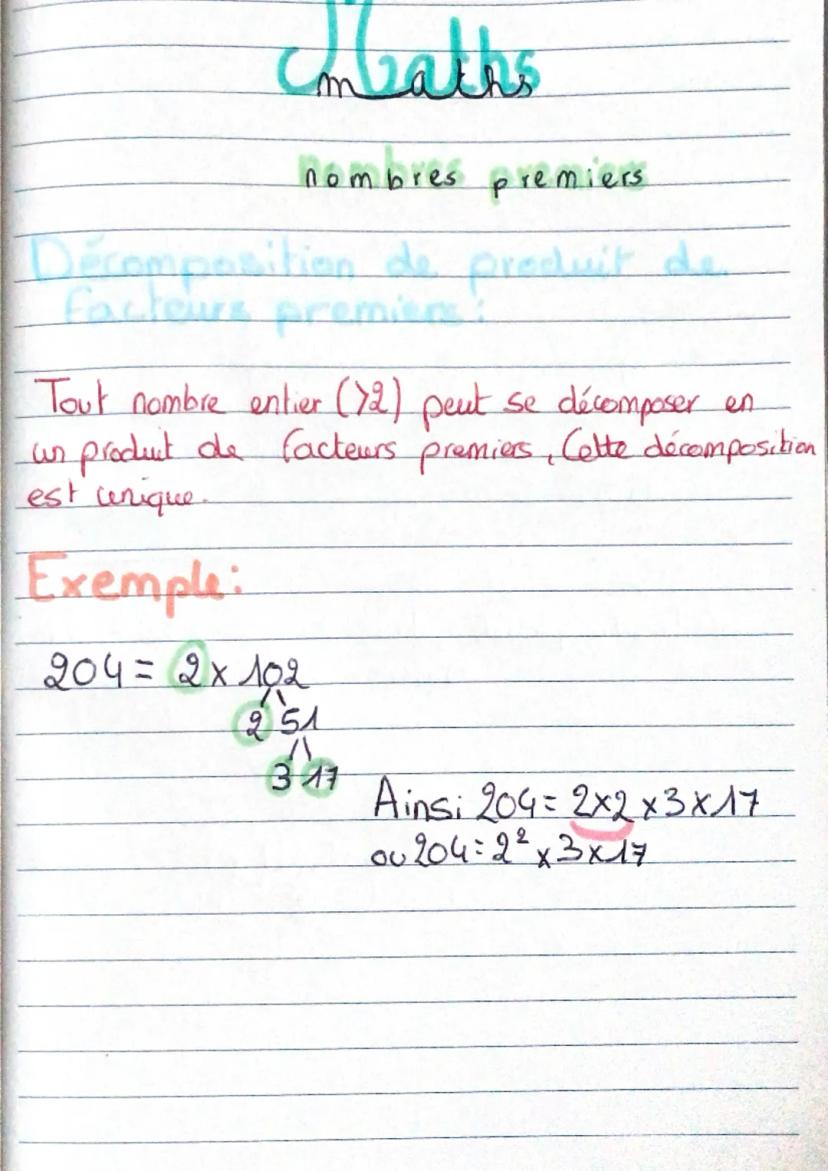 Maths
maths
nombres premiers
Décomposition de produit de
facteurs premiers:
Tout nombre entier (>2) peut se décomposer en
un produit de facteurs premiers, Cette décomposition
est unique.
Exemple:
204 = 2 x 102
2 51
3 17
Ainsi 204 = 2x2 x 3 x 17
ou 204 = 2² x 3 x 17